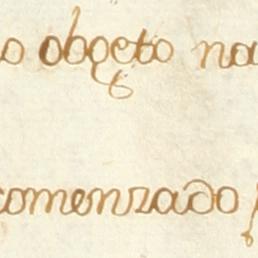 o obgeto na
comenzado